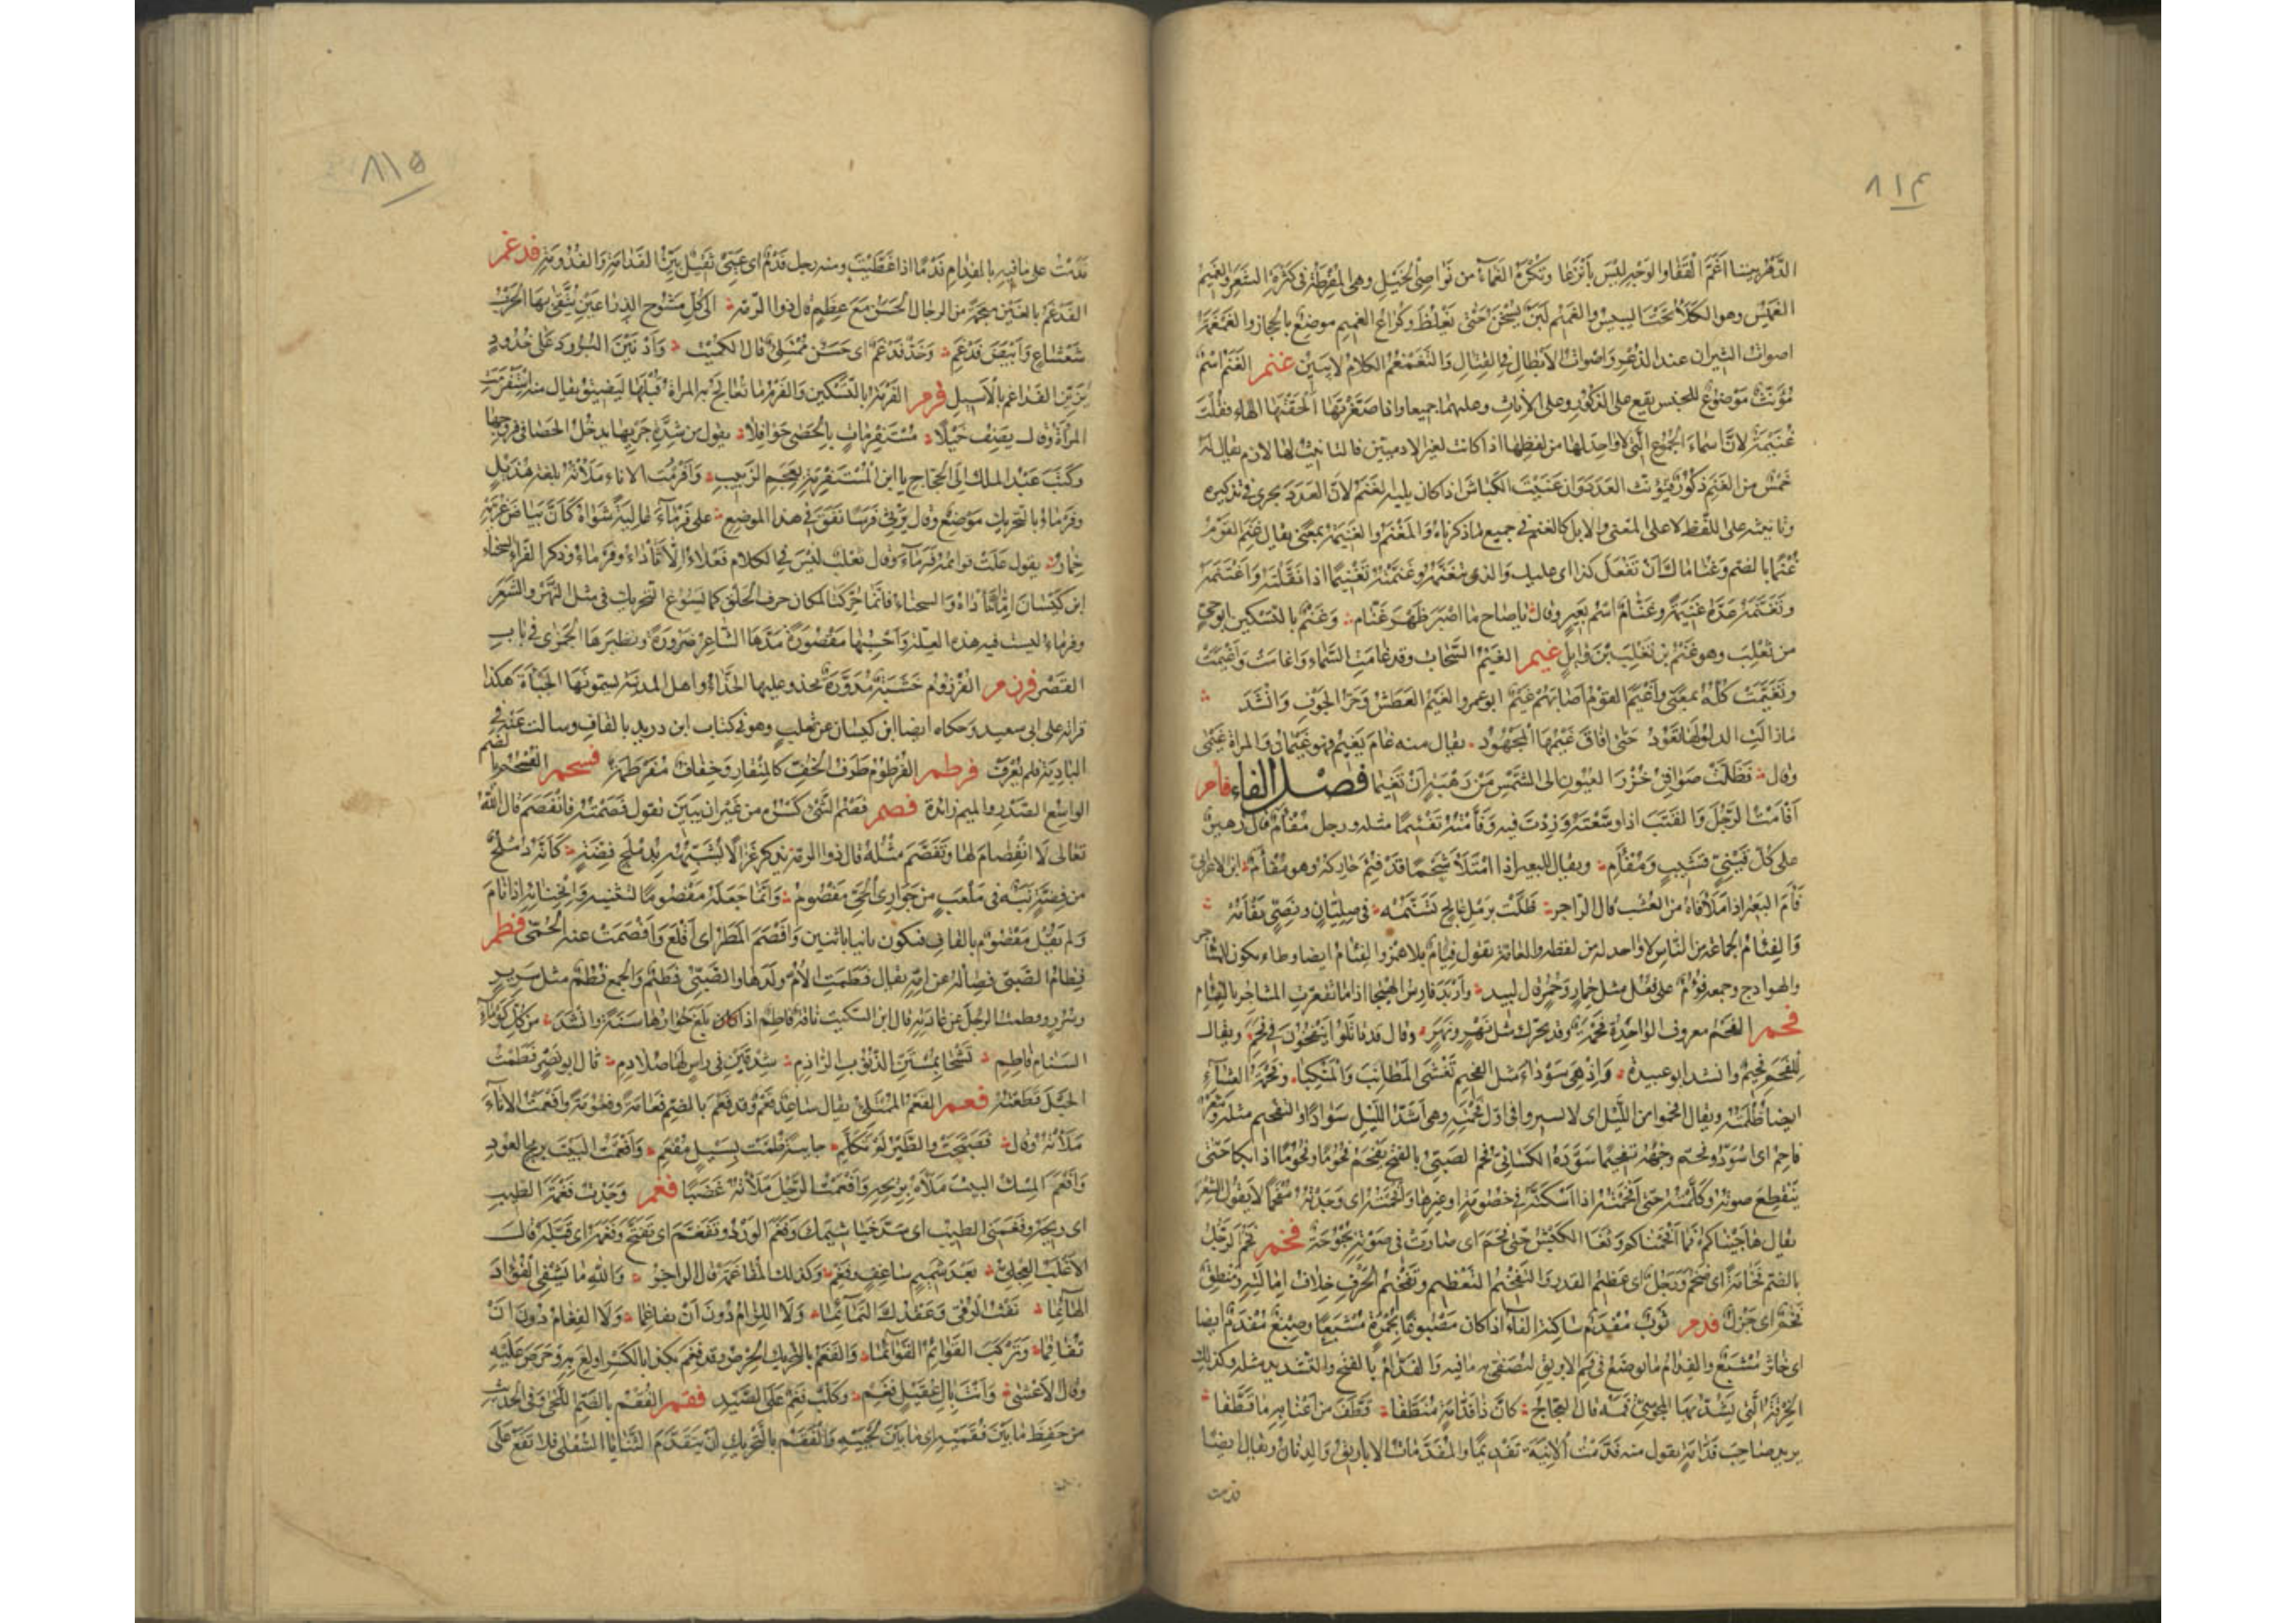 ٨١٤
الدَّهْرُ بيننا اَغَمَّ القَفَا والوَجْهِ ليْسَ بأنْزَعَا وتُكْرَهُ الغَمَّاءُ من نَواصِى الخَيْلِ وهى المُفْرِطَةُ فى كَثْرَةِ الشَعَرِ والغَمِيمُ
الغَمِيْسُ وهو الكَلَأُ تَحْتَ اليبيسِ والغَمِيْمُ لَبَنٌ يُسَخَّنُ حتّى يَغْلُظَ وكُرَاعُ الغَمِيمِ موضعٌ بالحجاز والغَمْغَمَةُ
اصواتُ الثيران عند الذُعْرِ وَاصواتُ الأبطالِ فى القِتَالِ وَالتَغَمْغُمُ الكلامُ لا يَبِينُ غنم الغَنَمُ اسْمٌ
مُؤَنَّثٌ مَوْضُوعٌ للجنس يقع على الذكُورِ وعلى الأناثِ وعليهما جميعا واذا صَغَّرْتَهَا اَلْحَقْتَهَا الهاء فقُلْتَ
غُنَيْمَةٌ لانّ اَسْماءَ الجُمُوعِ الَّتى لا واحِدَ لها من لفظِها اذا كانت لغير الادميّين فالتانيثُ لها لازم يقال له
خَمْسٌ من الغَنَمِ ذكُورٌ فيُؤنّث العَدَدَ وان عَنَيْتَ الكِبَاشَ اذا كان يليه الغَنَمُ لانّ العَدَدَ يجرى فى تذكيره
وتانيثه على اللفظ لا على المعنى والابل كالغنم فى جميع ما ذكرناه وَالمَغْنَمُ والغَنِيْمَةُ بمَعْنًى يقال غَنِمَ القَوْمُ
غُنْمًا بالضم وغُنَاماك اَنْ تَفْعَلَ كذا اى غايتك وَالذى تتغَنَّمُهُ وغَنَّمْتُهُ تَغْنِيمًا اذا نَفَّلْتَهُ وَاغْتَنَمَهُ
وتَغَنَّمَهُ عَدَّهُ غَنِيمَةً وغَنَّامٌ اسْمُ بَعِيرٍ وقال يا صاح ما اصْبَرَ ظَهْرَ غَنَّام وَغَنْمٌ بالتسكين ابو حَىٍّ
من تَغْلِبَ وهو غَنْمُ بن تَغْلِبَ بْنِ وَائِلٍ غيم الغَيْمُ السَّحَابُ وقد غامَتِ السَّماءُ وَاغامَتْ وَاَغْيَمَتْ
وتَغَيَّمَتْ كُلُّهُ بمعنًى وَاَغْيَمَ القومُ اَصَابَهُمْ غَيْمٌ ابو عمرو الغَيْمُ العَطَشُ وَحَرُّ الجَوْفِ وَانْشَدَ
مَا زالَتِ الدلوُ لَهَا تَعُوْدُ حَتّى اَفَاقَ غَيْمُهَا المَجْهُودُ يقال منه غامَ يَغِيْمُ فهو غَيْمَانُ وَالمراة غَيْمَى
وقال فَظَلَّتْ صَوَافِنَ خُزْرَ العُيُونِ الى الشَّمْسِ مِنْ رَهْبَةٍ اَنْ تَغِيْمَا فصل الفاء فأم
اَفْاَمْتُ الرَّحْلَ وَالقَتَبَ اذا وَسَّعْتَهُ وَزِدْتَ فيه وَفَأَّمْتُهُ تَفْئِيْمًا مثله ورحل مُفْأَمٌ قال زُهيرٌ
على كُلّ قَيْنِىٍّ قَشيبٍ وَمُفْاَمِ ويقال للبعير اذا امْتَلَأ شَحْمًا قَدْ فُئِمَ حَارِكُهُ وهو مُفْأَمٌ ابن الاعرابى
فَأَمَ البَعِيرُ اذا مَلَأ فاهُ من العُشْبِ قال الراجز ظَلَّتْ برَمْلِ عالِجٍ تَسَنَّمُهْ فى صِلِّيَانٍ ونَصِىٍّ تَفْأَمُهْ
وَالفِئَامُ الجماعة من النّاس لا واحد له من لفظه والعامّة تقول فِيَامٌ بلا همز والفِئَامُ ايضا وطاء يكون للمشاجر
والهوادج وجمعه فُؤُمٌ على فُعُل مثل خِمارٍ وخُمُرٍ قال لبيد وَاَرْبَدُ فارِسُ الهَيْجَا اذا ما تَقَعَّرَتِ المشاجر بالفِئام
فحم الفَحْمُ معروف الواحِدَةُ فَحْمَةٌ وقد يحرّك مثل نَهْرٍ ونَهَرٍ وقال قد قَاتَلُوا لو يَنْفُخُونَ فى فَحَمْ ويقال
لِلفَحْمِ فَحِيْمٌ وانشد ابو عبيدة وَاذْ هِىَ سَوْدَاءُ مثل الفحيم تُغَشِّى المَطَانِبَ وَالمَنْكِبَا وفَحْمَةُ العِشَآءِ
ايضا ظُلْمَتُهُ ويقال افْحِمُوا من اللَّيل اى لا تسيروا فى اوّل فَحْمَتِهِ وهى اَشَدُّ اللّيْلِ سَوادًا والتفحيم مثله وشَعَرٌ
فاحِمٌ اى اَسْوَدُ وفحّم وَجْهَهُ تفحيمًا سَوَّدَهُ الكسائىّ فَحَمَ الصَبِىُّ بالفتح يَفْحَمُ فُحُومًا وفُحُومًا اذا بكا حَتّى
يَنْقَطِعَ صوتهُ وكَلَّمْتُهُ حتّى اَفْحَمْتُهُ اذا اَسْكَتَّهُ فى خصُومَةٍ او غيرها وَافْحَمْتُهُ اى وَجَدْتُهُ مُفْحَمًا لا يقول الشِعْرَ
يقال هاجَيْناكم فما اَفْحَمْناكم وثَغَا الكَبْشُ حتّى فحَمَ اى صارَتْ فى صَوْتِه بُحُوْحَةٌ فخم فَخُمَ الرَجُلُ
بالضم فَخَامَةً اى ضَخُمَ وَرَجُلٌ فخْمٌ اى عَظيمُ القدر وَالتَفْخِيْمُ التَعْظيم وتَفْخِيْمُ الحَرْفِ خِلَافُ اِمَالَتِهِ ومَنْطِقٌ
فَخْمٌ اى جَزْلٌ فدم ثَوْبٌ مُفْدَمٌ ساكنة الفآءِ اذا كان مَصْبُوغًا بحُمْرَةٍ مُشْبَعًا وصِبْغٌ مُفْدَمٌ ايضا
اى خاثرٌ مُشْبَعٌ والفِدَامُ ما يوضَعُ فى فَمِ الابريقِ ليُصَفّى به ما فيه وَالفَدَّامُ بالفتح والتشديد مثله وكذلك
الخِرْقَةُ الَّتى يَشُدُّ بها المَجُوسِىُّ فَمَه قال العجّاج كانَ ذا فَدَّامَةٍ مُنَطَّفَا قَطَّفَ من اَعْنَابِهِ مَا قَطَّفَا
يريد صاحِبَ فَدَّامَةٍ تقول منه فَدَّمْتُ الآنِيَةَ تَفْدِيْمًا والمُفَدَّمَاتُ الاباريقُ وَالدِنَانُ ويقال ايضًا
فدمت
٨١٥
فَدَمْتُ على ما فيه بالفِدامِ فَدْمًا اذا غَطَّيْتَ ومنه رجل فَدْمٌ اى عَيِىٌّ ثَقِيلٌ بَيِّنُ الفَدَامَةِ وَالفُدُومَةِ فدغم
الفَدْغَمُ بالغَيْن مُعجمة من الرجال الحَسَنُ مَعَ عِظَمٍ قال ذوا الرّمّه الى كُلّ مَشْبُوحِ الذِرَاعَيْنِ يُتَّقَى بها الحَرْبُ
شَعْشَاعٍ وَاَبْيَضَ فَدْغَمِ وَخَدٌّ فَدْغَمٌ اى حَسَنٌ مُمْتَلِئٌ قال الكميت وَاَدْنَيْنَ البُرُودَ عَلَى خُدُودٍ
يُزَيِّنَّ الفداغم بالاَسِيلِ فرم الفَرْمَةُ بالتّسْكين وَالفَرْمُ ما تُعَالِجُ به المراةُ قُبُلَهَا ليَضِيْقَ يقال منه اسْتَفْرَمَتِ
المرْاةُ وقال يَصِفُ خَيْلًا مُسْتَفْرِماتٍ بالحَصَى جَوَافِلَا يقول من شِدَّةِ جَرْيِها يدخُلُ الحَصَا فى فروجها
وكَتَبَ عَبْدُ الملك الى الحَجّاج يا ابن المُسْتَفْرِمَةِ بِعَجَمِ الزَبيبِ وَافْرَمْتُ الاناءَ مَلَأْتُهُ بلغة هُذَيْلٍ
وفَرَمَاءُ بالتحريك مَوْضعٌ وقال يَرْثِى فَرَسًا نَفَقَ فى هذا الموضع على فَرَمَآءَ عَالِيَةً شَوَاهُ كَاَنَّ بَيَاضَ غُرَّتِهِ
خِمَارُ يقول عَلَتْ قوائمُه فَرَمَآءَ وقال ثعلب ليْسَ فى الكلام فَعَلَاءُ اِلّا ثَأَدَاءُ وفَرَمَاءُ وذكر الفرّاء السَحَنَاءَ
ابن كَيْسَانَ امّا ثَأَدَاءُ والسحناءُ فانّما حُرِّكَتا لمكان حرف الحَلْقِ كما يَسُوغُ التحريك فى مثل النَّهَرِ والشَعَرِ
وفرماء ليست فيه هذه العِلّةُ وَاَحْسِبُها مقْصُورَةً مَدَّهَا الشاعِرُ ضَرُورَةً ونظيرهَا الجَمَزَى فى بابِ
القَصْرِ فرزم الفُرْزُومُ خَشَبَةٌ مُدَوَّرَةٌ يحذو عليها الحَذَّاءُ واهل المدينة يسمُّونَها الجَبْأَةَ هكذا
قراته على ابى سعيد وَحكاه ايضا ابن كيسان عن ثعلب وهو فى كتاب ابن دريدٍ بالقاف وسالت عَنْه فى
البادِيَةِ فلم يُعْرَفْ فرطم الفُرْطُومُ طَرَفُ الخُفِّ كالمِنْقارِ وَخِفَافٌ مُفَرْطَمَةٌ فسحم الفُسْحُمُ بالضم
الواسِعُ الصَدْرِ والميم زائدة فصم فَصْمُ الشَّىْءِ كَسْرُه من غَيْرِ ان يَبِينَ تقول فَصَمْتُهُ فانْفَصَمَ قال اللّه
تعالى لَا انْفِصَامَ لها وتَفَصَّمَ مثْلُهُ قال ذوا الرمّة يذكر غَزالًا يُشَبِّهُهُ بِدُمْلُجِ فِضَّةٍ كَاَنَّه دُمْلُجٌ
من فِضَّةٍ نَبَهٌ فى مَلْعَبٍ من جَوَارِى الحَىِّ مَفْصُومُ وَانَّما جَعَلَه مَفْصُومًا لتَثَنّيه وَانْحِنَائِهِ اذا نامَ
وَلم يَقُلْ مَقْصُومٌ بالقافِ فيكون بائنا باثنين وَافْصَمَ المَطَرُ اى اَقْلَعَ وَافْصَمَتْ عنه الحُمَّى فطم
فِطَامُ الصَّبِىِّ فِصَالُهُ عن امّه يقال فَطَمَتِ الاُمُّ ولَدَهَا والصَّبِىُّ فَطِيْمٌ وَالجمع فُطُمٌ مثل سَرِيرٍ
وسُرُرٍ وفطمت الرجُلَ عن عادته قال ابن السكّيت ناقةٌ فاطِمٌ اذا كان بَلَغَ حُوَارُها سَنَةً وانشَدَ من كُلّ كَوْمَآءِ
السَنام فاطِمِ تَشْحَا بِمُسْتَنِّ الذَنُوبِ الراذِمِ شِدْقَيْنِ فى راسٍ لها صُلَادِمِ قال ابو نَصْرٍ فَطَمْتُ
الحَبْلَ قَطَعْتُهُ فعم الفَعْمُ المُمْتَلِئُ يقال ساعِدٌ فَعْمٌ وقد فَعُمَ بالضم فَعَامَةً وفُعُومَةً وافْعَمْتُ الاناءَ
مَلَأْتُهُ وقال فَصَبَّحَتْ والطَيْرُ لم تَكَلَّمِ جابيةً طُمَّتْ بِسَيْلٍ مُفْعَمِ وَافْعَمْتُ البَيْتَ بريح العودِ
وَافْعَمَ المِسْكُ البيتَ مَلَأَه بريحِهِ وَافْعَمْتُ الرَّجُلَ مَلَأْتُهُ غَضَبًا فغم وَجَدْتُ فَغْمَةَ الطيبِ
اى رِيحَهُ وفَغَمَنِى الطيبُ اى سَدَّ خياشيمك وَفَغَمَ الوَرْدُ وتَفَغَّمَ اى تَفَتَّحَ وفَغَمَهُ اى قَبَّلَه قال
الاَغْلَبُ العِجلىُّ بَعْدَ شَمِيمٍ شاغِفٍ وفَغْمِ وكذلك المُفَاغَمَةُ قال الراجز وَاللّهِ ما يَشْفِى الفُؤادَ
الهائِمَا نَفْثُ الرُّقَى وَعَقْدُكَ التَمَآئِمَا وَلَا اللِزَامُ دُونَ اَنْ يفاغِمَا وَلَا الفِغَامُ دُونَ اَنْ
تُفَاقِمَا وَتَرْكَبَ القَوَائِمُ القَوَآئِمَا وَالفَغَمُ بالتحريك الحِرْصُ وقد فَغِمَ بكذا بالكَسْر اولِعَ بِهِ وَحَرَصَ عَلَيْهِ
وقال الاَعْشى وَاَنْتَ بِآلِ عُقَيْلٍ فَغِمْ وكَلْبٌ فَغِمٌ عَلَى الصَّيْدِ فقم الفُقْمُ بالضَمّ اللُّحْىُ وفى الحديث
من حَفِظَ مَا بَيْنَ فُقْمَيْهِ اى مَا بَيْنَ لَحْيَيْهِ وَالفَقَمُ بالتَحْريكِ اَنْ يَتَقَدَّمَ الثَّنَايَا السُّفْلَى فلا تَقَعَ عَلَى